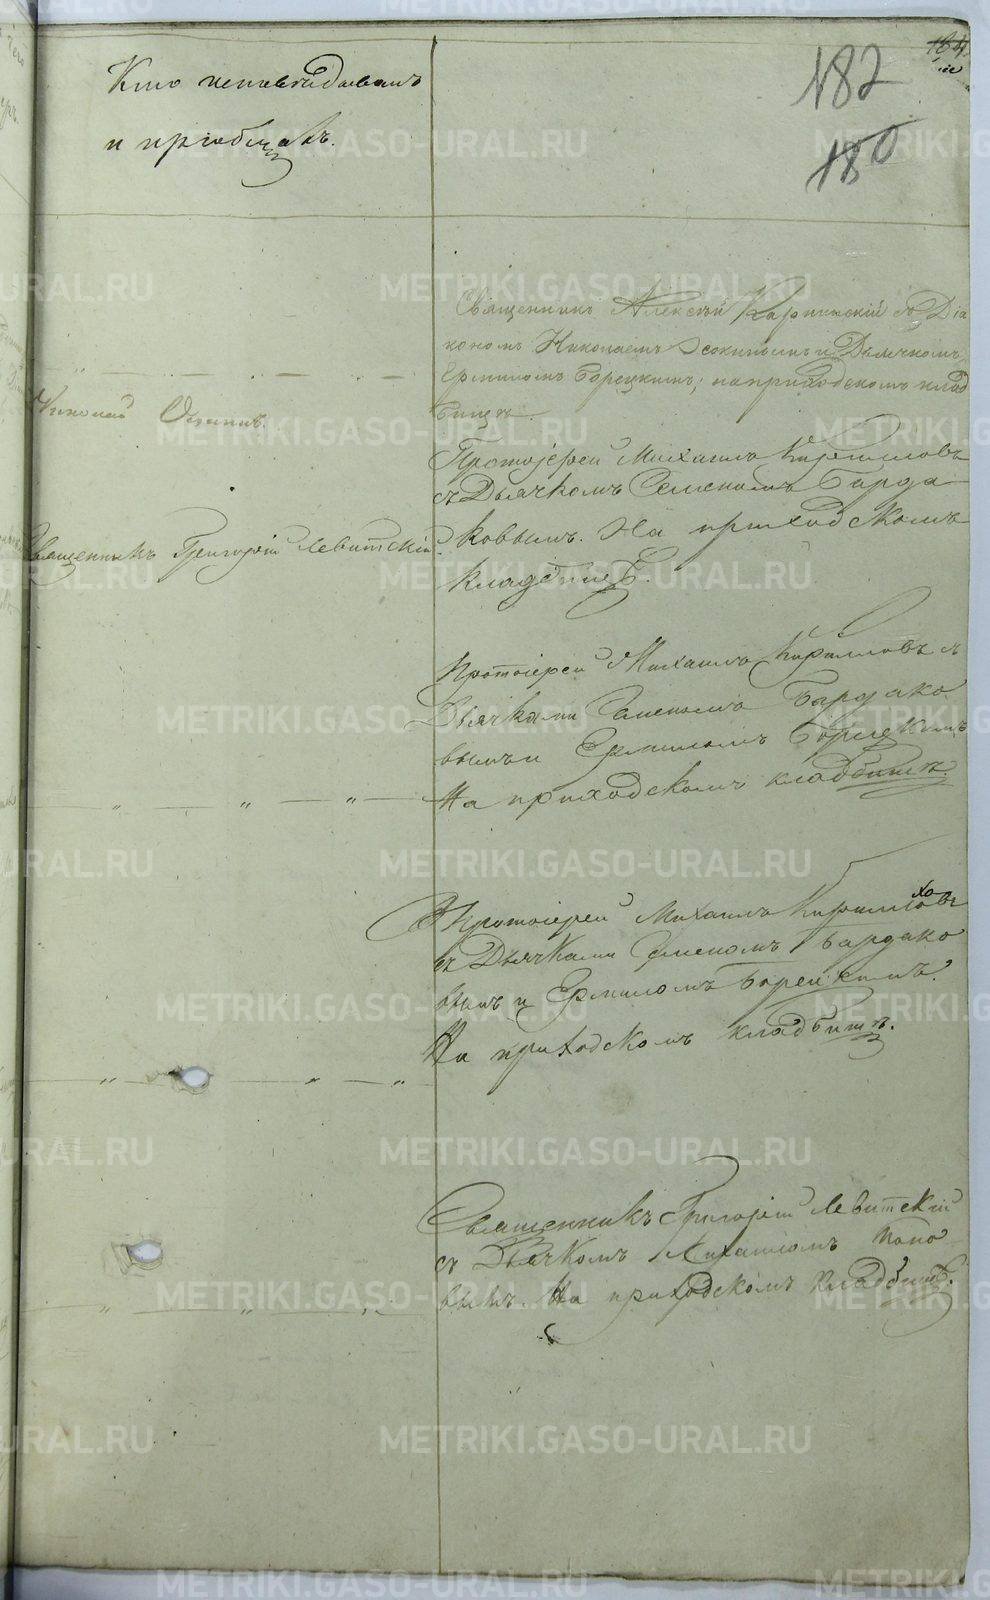 Кто исповѣдывалъ
и пріобщалъ.
182
180
184
Священникъ Алексѣй Карпинскій съ Діа
кономъ Николаемъ Осокинымъ и Дьячкомъ
Ермиломъ Борецкимъ; на приходскомъ клад
бищѣ.
Николай
Протоіерей Михаилъ Кирилловъ
съ Дьячкомъ Семеномъ Барда
ковымъ. На приходскомъ
кладбищѣ.
Священникъ Григорій Левитскій.
Протоіерей Михаилъ Кирилловъ съ
Дьячками Семеномъ Бардако
вымъ и Ермиломъ Борецкимъ
На приходскомъ кладбищѣ.
Протоіерей Михаилъ Кирилловъ
съ Дьячками Семеномъ Бардако
вымъ и Ермиломъ Борецкимъ.
На приходскомъ кладбищѣ.
Священникъ Григорій Левитскій
съ Дьячкомъ Михаиломъ Попо
вымъ. На приходскомъ кладбищѣ.
METRIKI.GASO-URAL.RU